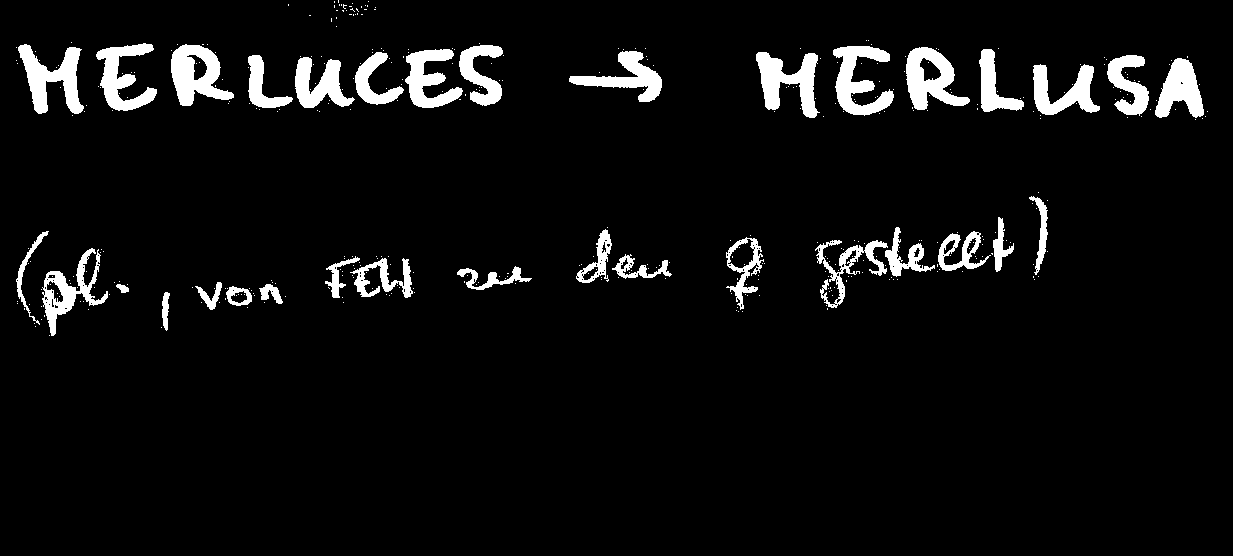 MERLUCES → MERLUSA
(pl., von FEW zu den ♀ gestellt)